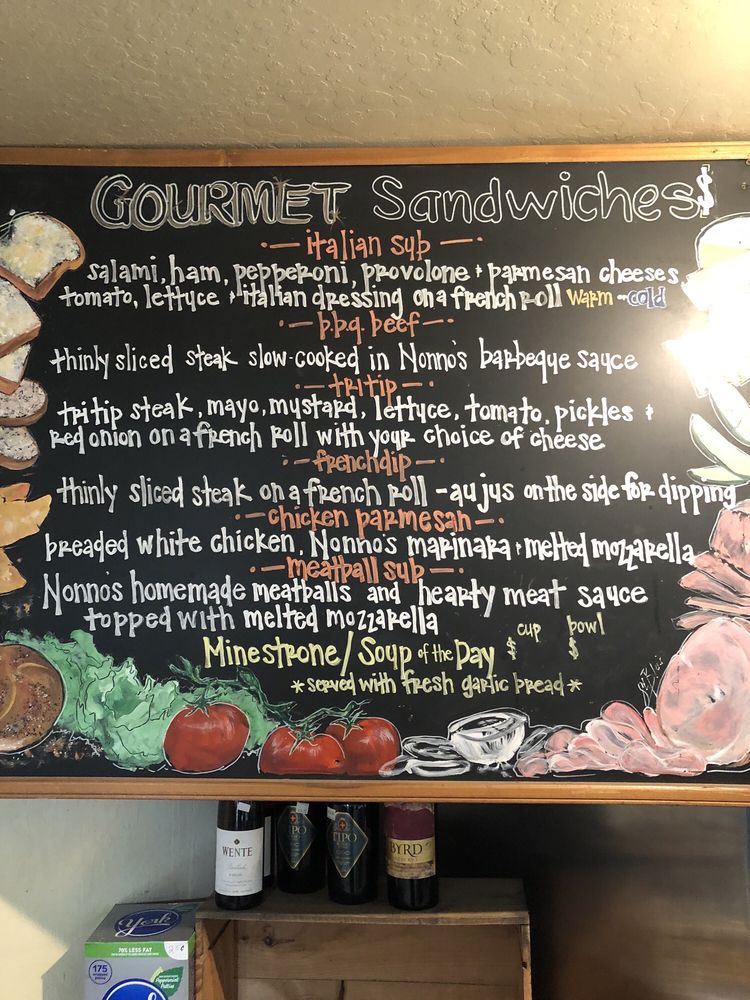 GOURMET Sandwiches $
italian sub
salami, ham, pepperoni, provolone + parmesan cheeses,
tomato, lettuce + italian dressing on a french roll warm - cold
b.b.q. beef
thinly sliced steak slow-cooked in Nonno's barbeque sauce
tritip
tritip steak, mayo, mustard, lettuce, tomato, pickles +
red onion on a french roll with your choice of cheese
frenchdip
thinly sliced steak on a french roll - au jus on the side for dipping
chicken parmesan
breaded white chicken, Nonno's marinara + melted mozzarella
meatball sub
Nonno's homemade meatballs and hearty meat sauce
topped with melted mozzarella
cup bowl
Minestrone/Soup of the Day $ $
*served with fresh garlic bread*
WENTE
TIPO
TIPO
BYRD
York
70% LESS FAT
25¢
175
Peppermint
Patties